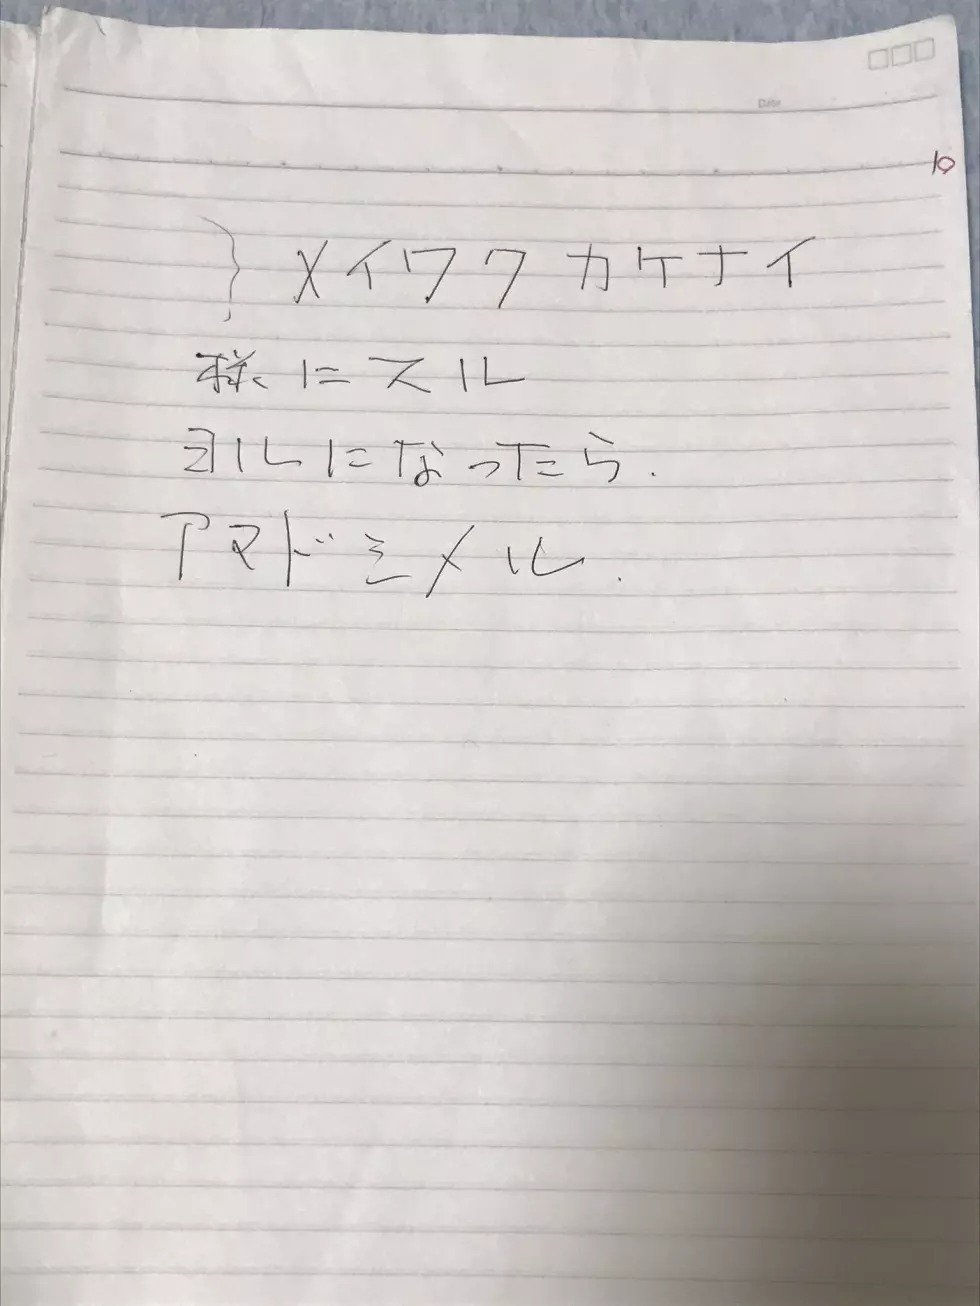 Date
10
} メイワク カケナイ
様にスル
ヨルになったら.
アマドシメル.